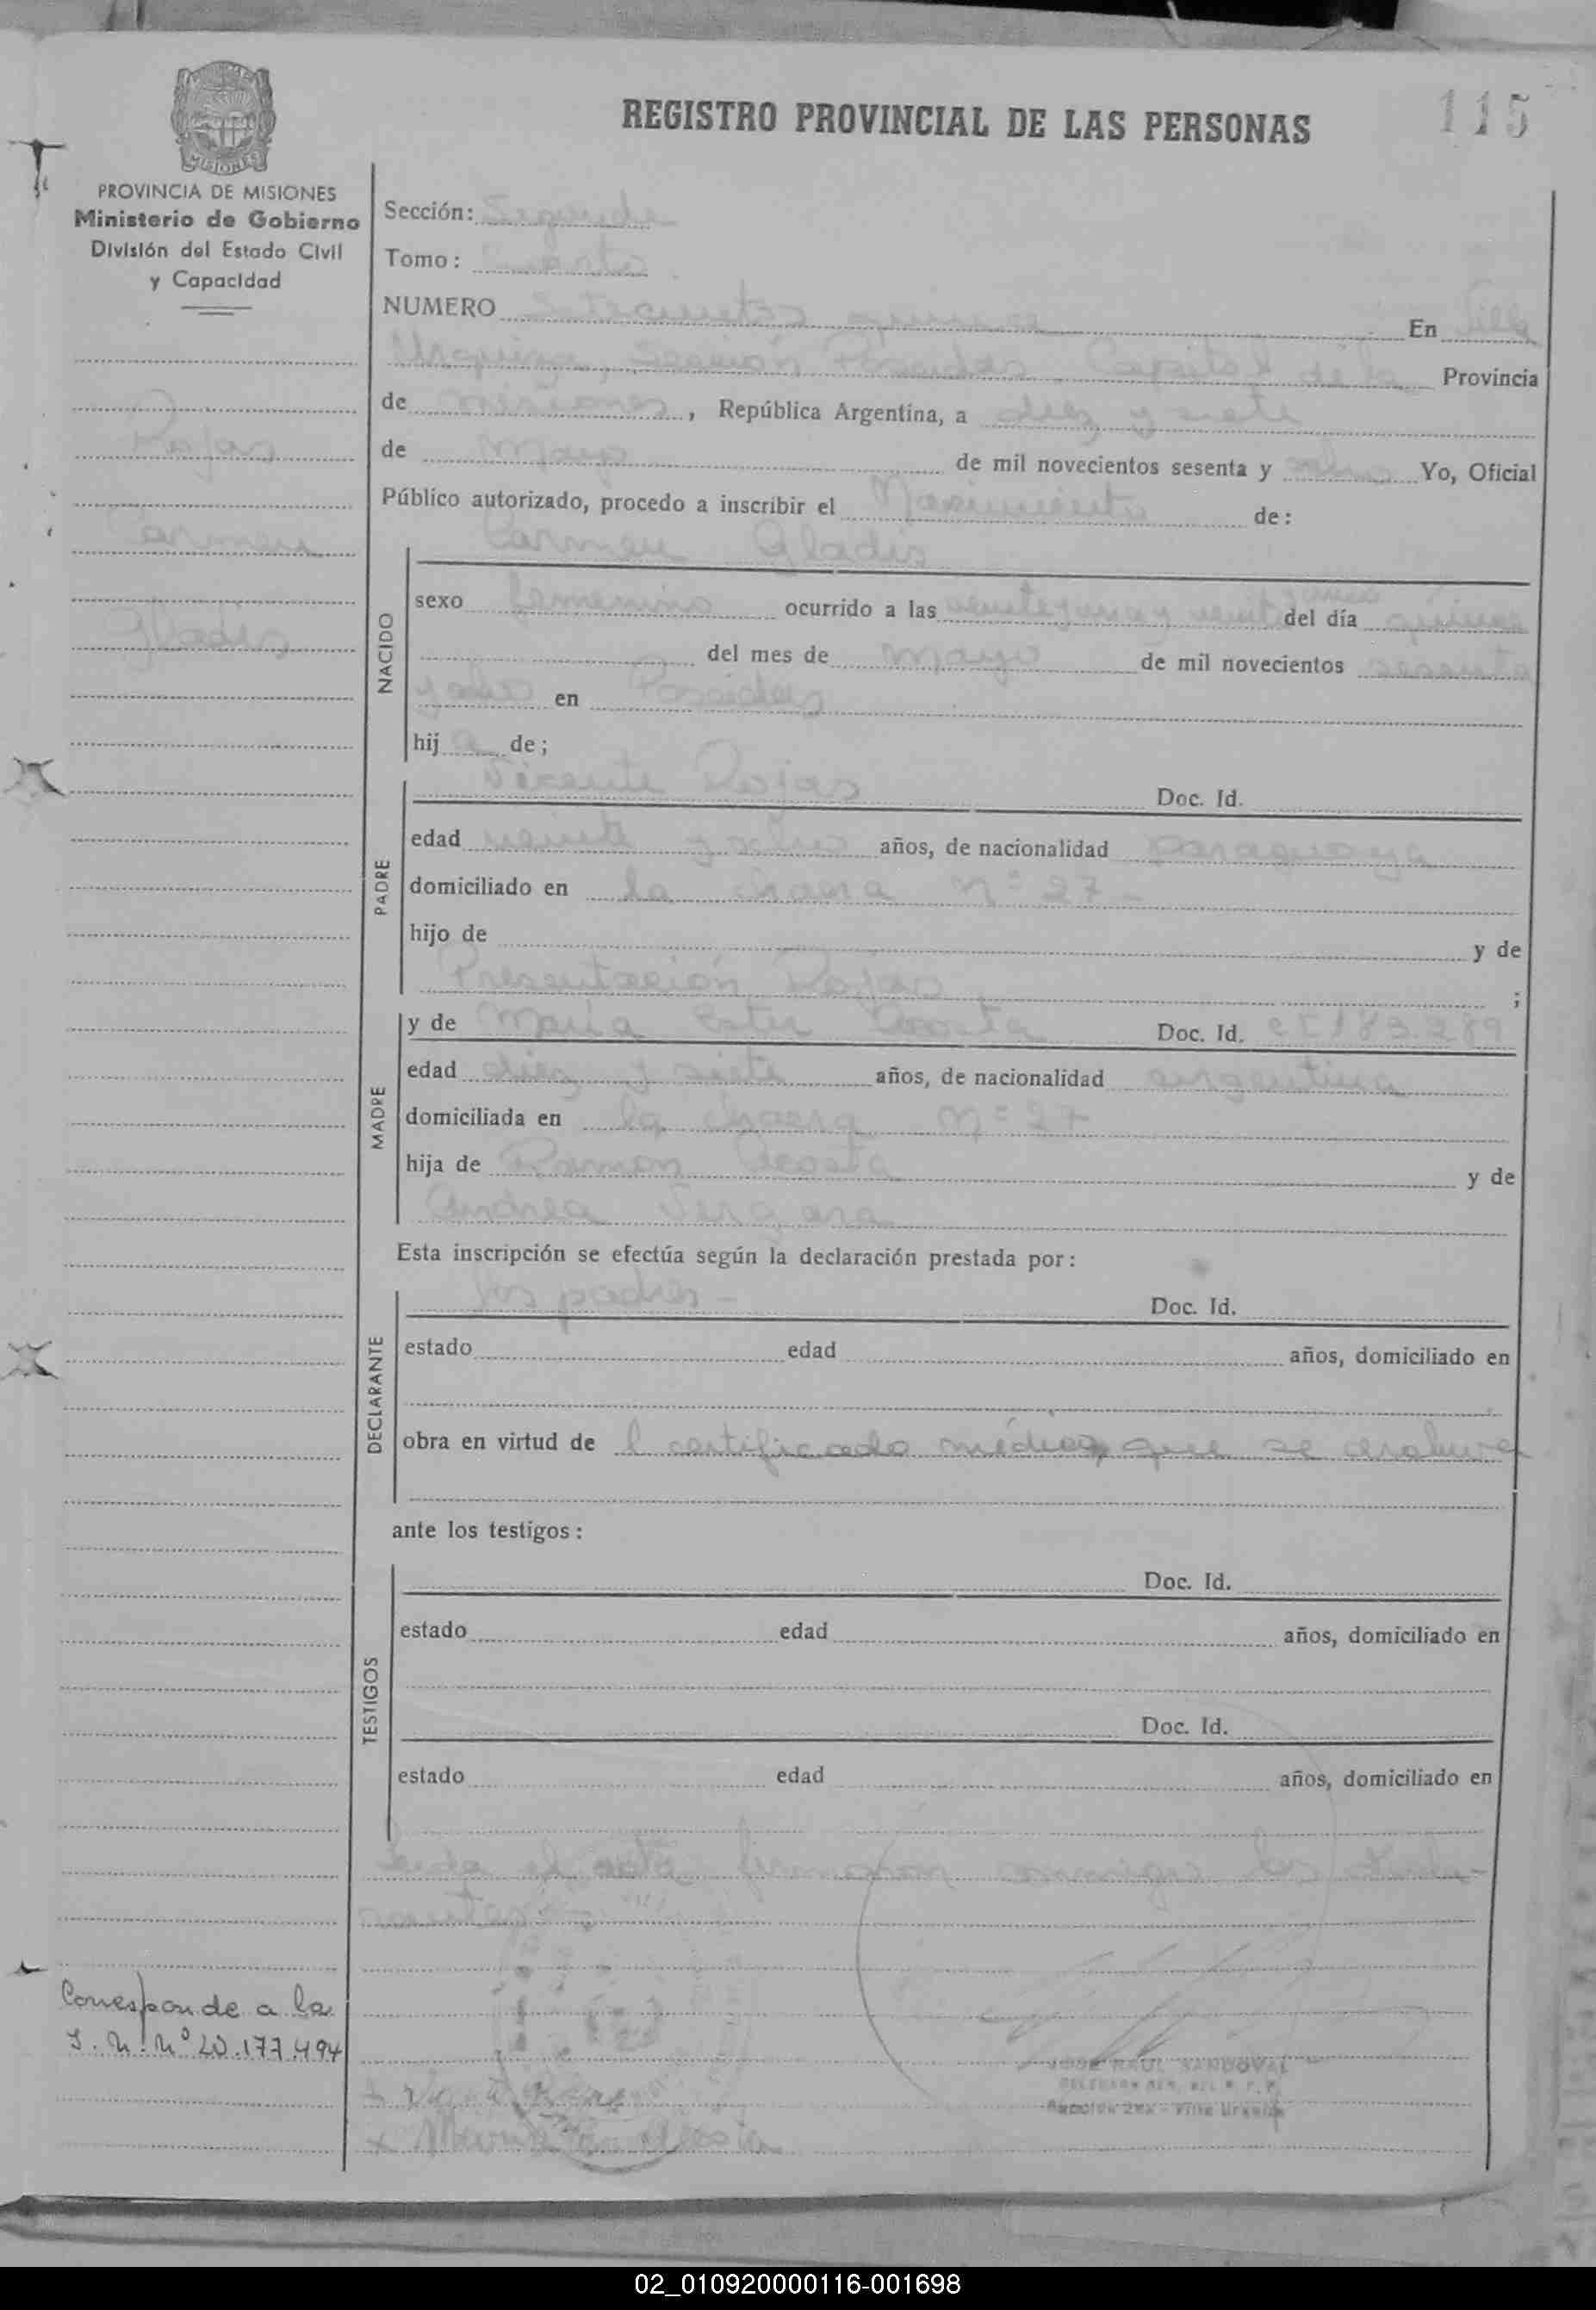 REGISTRO PROVINCIAL DE LAS PERSONAS
115
MISIONES
PROVINCIA DE MISIONES
Ministerio de Gobierno
División del Estado Civil
y Capacidad
Rojas
Carmen
Gladis
Sección: Segunda
Tomo: Cuarto
NUMERO Setecientos quince En Villa
Urquiza, Sección Posadas Capital de la Provincia
de Misiones, República Argentina, a diez y siete
de Mayo de mil novecientos sesenta y ocho Yo, Oficial
Público autorizado, procedo a inscribir el Nacimiento de:
Carmen Gladis
NACIDO
sexo femenino ocurrido a las del día quince
del mes de Mayo de mil novecientos sesenta
y ocho en Posadas
hija de;
Vicente Rojas Doc. Id.
PADRE
edad veinte y ocho años, de nacionalidad paraguaya
domiciliado en la chacra Nº 27-
hijo de y de
Presentación Rojas ;
y de María Ester Acosta Doc. Id.
MADRE
edad diez y siete años, de nacionalidad argentina
domiciliada en la chacra Nº 27
hija de Ramón Acosta y de
Andrea Vergara
Esta inscripción se efectúa según la declaración prestada por:
los padres - Doc. Id.
DECLARANTE
estado edad años, domiciliado en
obra en virtud de l certificado médico que se archiva
ante los testigos:
Doc. Id.
TESTIGOS
estado edad años, domiciliado en
Doc. Id.
estado edad años, domiciliado en
Leida el acta firmaron conmigo
Corresponde a la
Nº 20.177.494
JOSE RAUL SANDOVAL
María Acosta
02_010920000116-001698